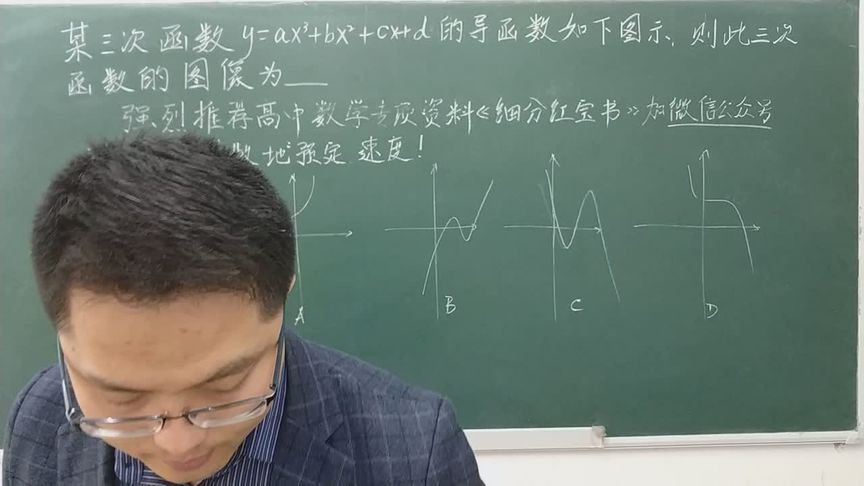 某三次函数 y=ax³+bx²+cx+d 的导函数如下图示, 则此三次
函数的图像为___
强烈推荐高中数学专项资料《细分红宝书》加微信公众号
地预定速度!
A B C D